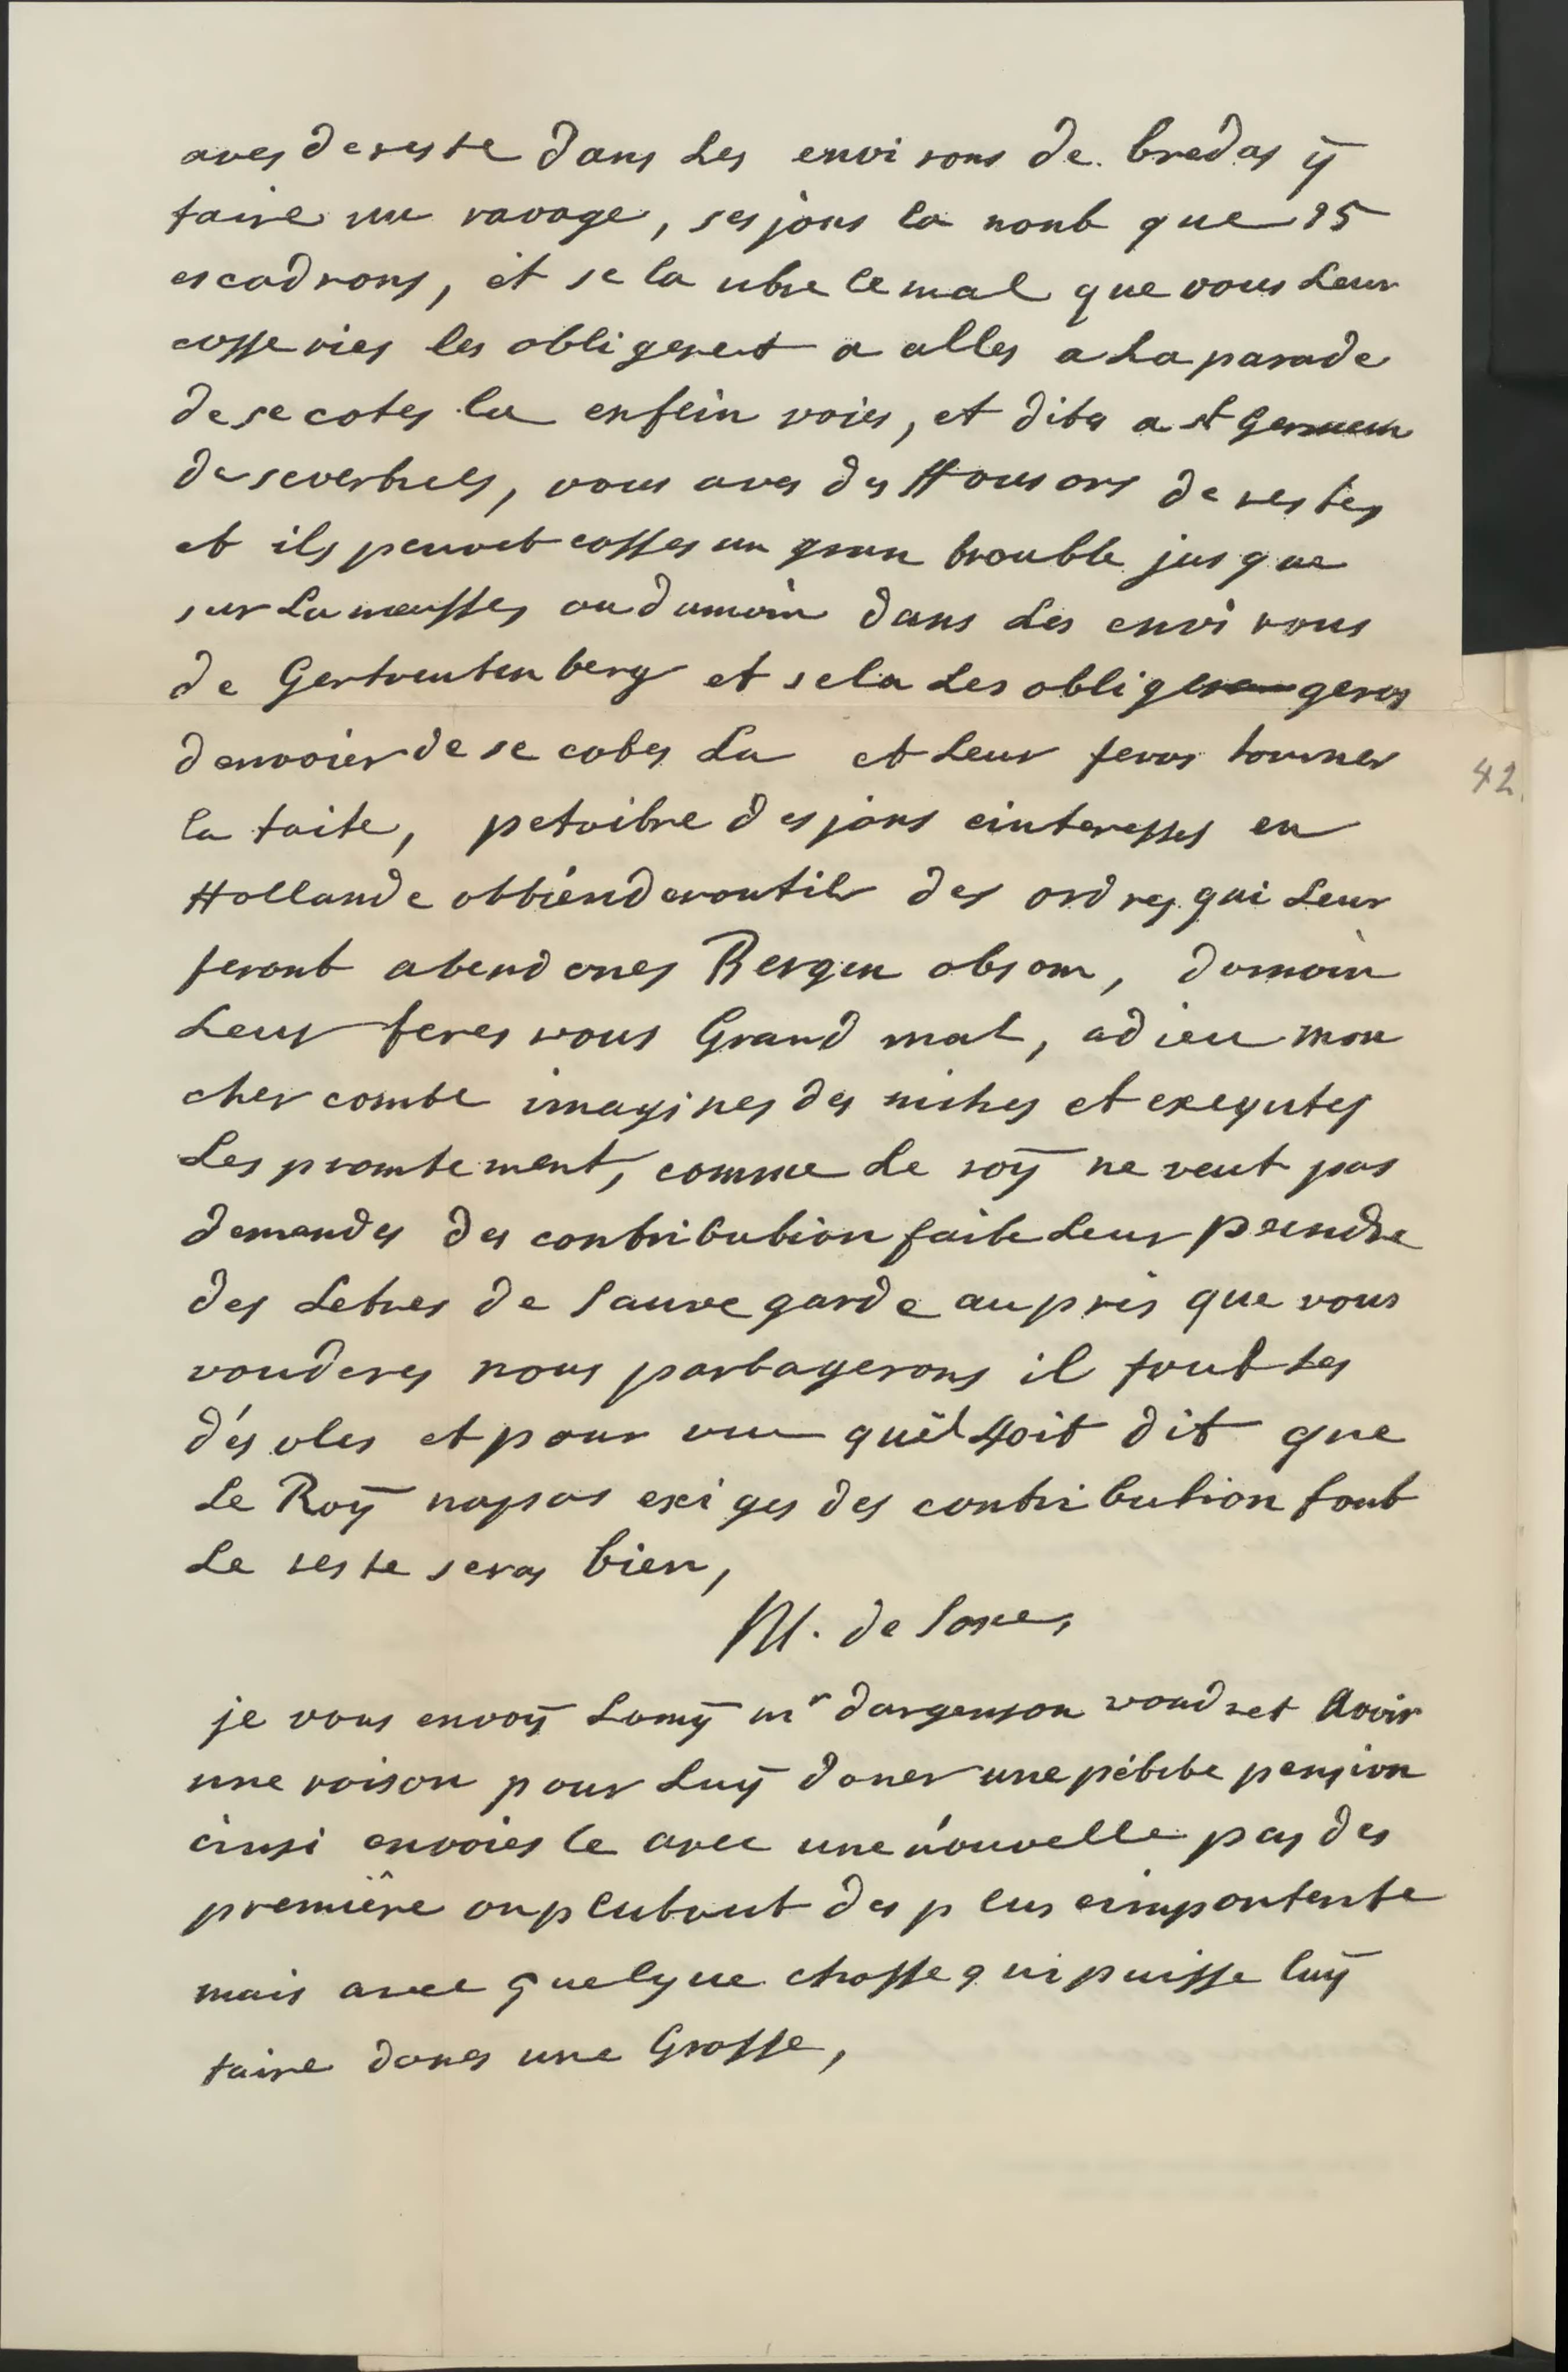 aves de reste dans Les environs de bredas ÿ
faire un ravage, ses jans la nont que 25
escadrons, et se la utre le mal que vous Leur
cosseries les obligeret a alles a La parade
de se cotes la enfein voies, et dites a st Germein
de severtues, vous aves des Housors de restes
et ils peuvet cosses un gran trouble jusque
sur La meusses ou dumoin dans Les environs
de Gertreutenberg et sela Les obligeros
denvoier de se cotes La et Leur feros tourner
la taite, petaitre des jans einteresses en
Hollande obtienderontils des ordres qui Leur
feront abendones Bergen obsom, dumoin
Leur feres vous Grand mal, adieu mon
cher comte imagines des niches et exequtes
Les promtement, comme Le roÿ ne veut pas
demandes des contribution faite Leur prendre
des Letres de sauve garde au pris que vous
vouderes nous partagerons il fout Les
désoles et pour vu quil soit dit que
Le Roÿ nospas exiges des contribution tout
Le reste seras bien,
M. de Saxe,
je vous envoÿ Lamÿ mr dargenson voudret Avoir
une raison pour Luÿ doner une petite pension
ainsi envoies le avec une nouvelle pas des
première ou plutout des plus eimportente
mais avec quelque chosse qui puisse luÿ
faire dones une Grosse,
42